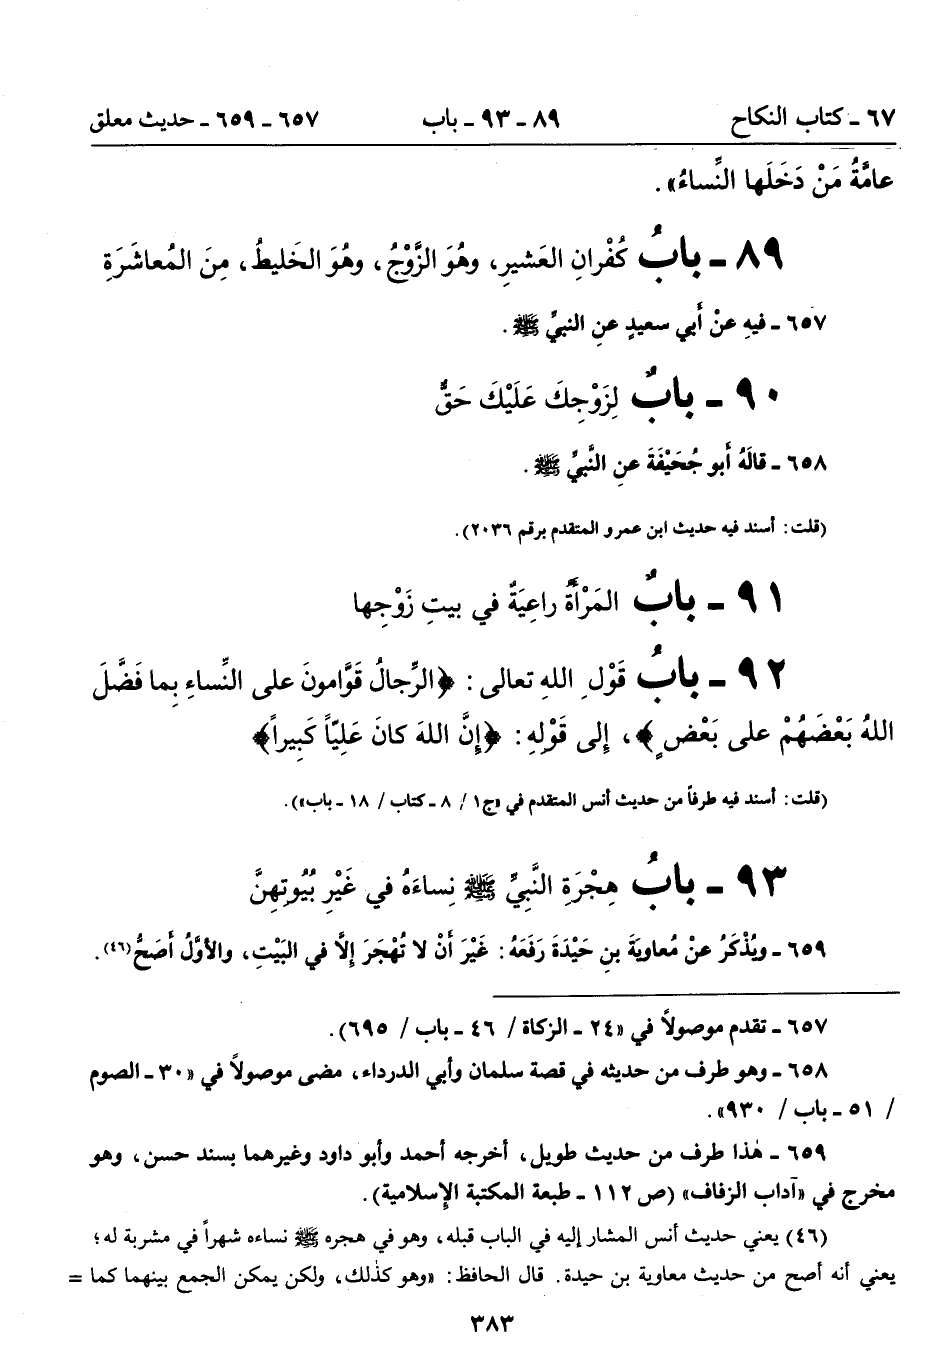 ٦٧ ـ كتاب النكاح ٨٩ ـ ٩٣ ـ باب ٦٥٧ ـ ٦٥٩ ـ حديث معلق
عامَّةُ مَنْ دَخَلَها النِّساءُ» .
٨٩ ـ بابُ كُفْرانِ العَشيرِ، وهُوَ الزَّوْجُ، وهُوَ الخَليطُ، مِنَ المُعاشَرَةِ
٦٥٧ ـ فيهِ عنْ أَبي سعيدٍ عنِ النبيِّ ﷺ .
٩٠ ـ بابٌ لِزَوْجِكَ عَلَيْكَ حَقٌّ
٦٥٨ ـ قالَهُ أَبو جُحَيْفَةَ عنِ النَّبيِّ ﷺ .
(قلت: أسند فيه حديث ابن عمرو المتقدم برقم ٢٠٣٦).
٩١ ـ بابٌ المَرْأَةُ راعِيَةٌ في بيتِ زَوْجِها
٩٢ ـ بابُ قَوْلِ اللهِ تعالى: ﴿الرِّجالُ قَوَّامونَ على النِّساءِ بِما فَضَّلَ
اللهُ بَعْضَهُمْ على بَعْضٍ﴾، إِلى قَوْلِهِ: ﴿إِنَّ اللهَ كانَ عَلِيّاً كَبِيراً﴾
(قلت: أسند فيه طرفاً من حديث أنس المتقدم في «ج١ / ٨ ـ كتاب / ١٨ ـ باب»).
٩٣ ـ بابُ هِجْرَةِ النَّبيِّ ﷺ نِساءَهُ في غَيْرِ بُيُوتِهِنَّ
٦٥٩ ـ ويُذْكَرُ عنْ مُعاويَةَ بنِ حَيْدَةَ رَفَعَهُ: غَيْرَ أَنْ لا تُهْجَرَ إِلَّا في البَيْتِ، والأوَّلُ أَصَحُّ(٤٦).
٦٥٧ ـ تقدم موصولاً في «٢٤ ـ الزكاة / ٤٦ ـ باب / ٦٩٥).
٦٥٨ ـ وهو طرف من حديثه في قصة سلمان وأبي الدرداء، مضى موصولاً في «٣٠ ـ الصوم
/ ٥١ ـ باب / ٩٣٠».
٦٥٩ ـ هٰذا طرف من حديث طويل، أخرجه أحمد وأبو داود وغيرهما بسند حسن، وهو
مخرج في «آداب الزفاف» (ص ١١٢ ـ طبعة المكتبة الإسلامية).
(٤٦) يعني حديث أنس المشار إليه في الباب قبله، وهو في هجره ﷺ نساءه شهراً في مشربة له؛
يعني أنه أصح من حديث معاوية بن حيدة. قال الحافظ: «وهو كذٰلك، ولكن يمكن الجمع بينهما كما =
٣٨٣